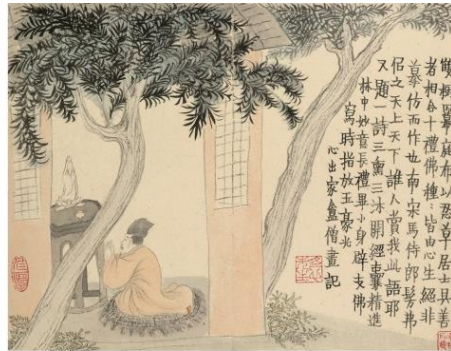 雙樹庭布以忍草居士具善
者相合十禮佛種〻皆由心生絕非
摹仿而作也南宋馬侍郎髣弗
侶之天上天下誰人賞我此語耶
又題一詩三熏三沐開經囊精進
林中妙音長禮畢小身辟支佛
寫時指放玉豪光
心出家盦僧畫記